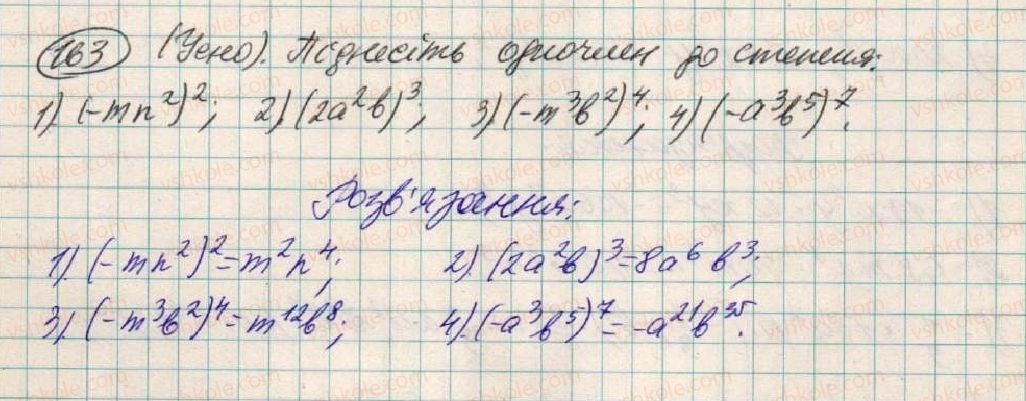 163 (Усно). Піднесіть одночлен до степеня:
1) (-mn²)²; 2) (2a²b)³; 3) (-m³b²)⁴; 4) (-a³b⁵)⁷.
Розв'язання:
1). (-mn²)²=m²n⁴; 2). (2a²b)³=8a⁶b³;
3). (-m³b²)⁴=m¹²b⁸; 4). (-a³b⁵)⁷=-a²¹b³⁵.